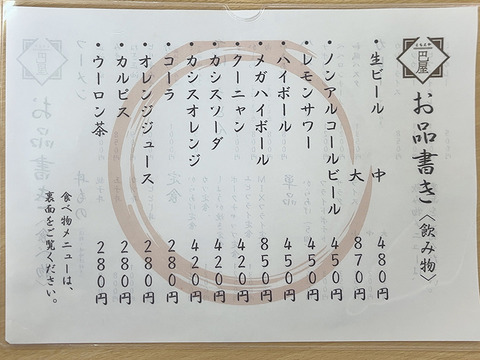 巴屋
お品書き〈飲み物〉
・生ビール 中 480円
大 870円
・ノンアルコールビール 450円
・レモンサワー 450円
・ハイボール 450円
・メガハイボール 850円
・クーニャン 420円
・カシスソーダ 420円
・カシスオレンジ 420円
・コーラ 280円
・オレンジジュース 280円
・カルピス 280円
・ウーロン茶 280円
食べ物メニューは、
裏面をご覧ください。